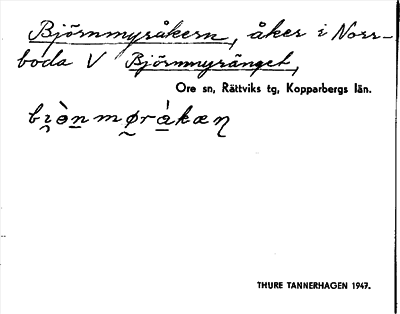 Björnmyråkern, åker i Norr-
boda V Björnmyränget,
Ore sn, Rättviks tg, Kopparbergs län.
THURE TANNERHAGEN 1947.